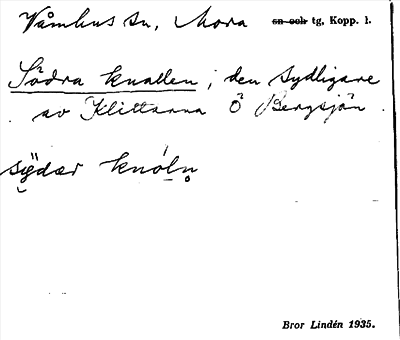 Våmhus sn, Mora sn och tg, Kopp. l.
Södra knallen; den sydligare
av Klittarna Ö Bergsjön.
knóln̥
Bror Lindén 1935.